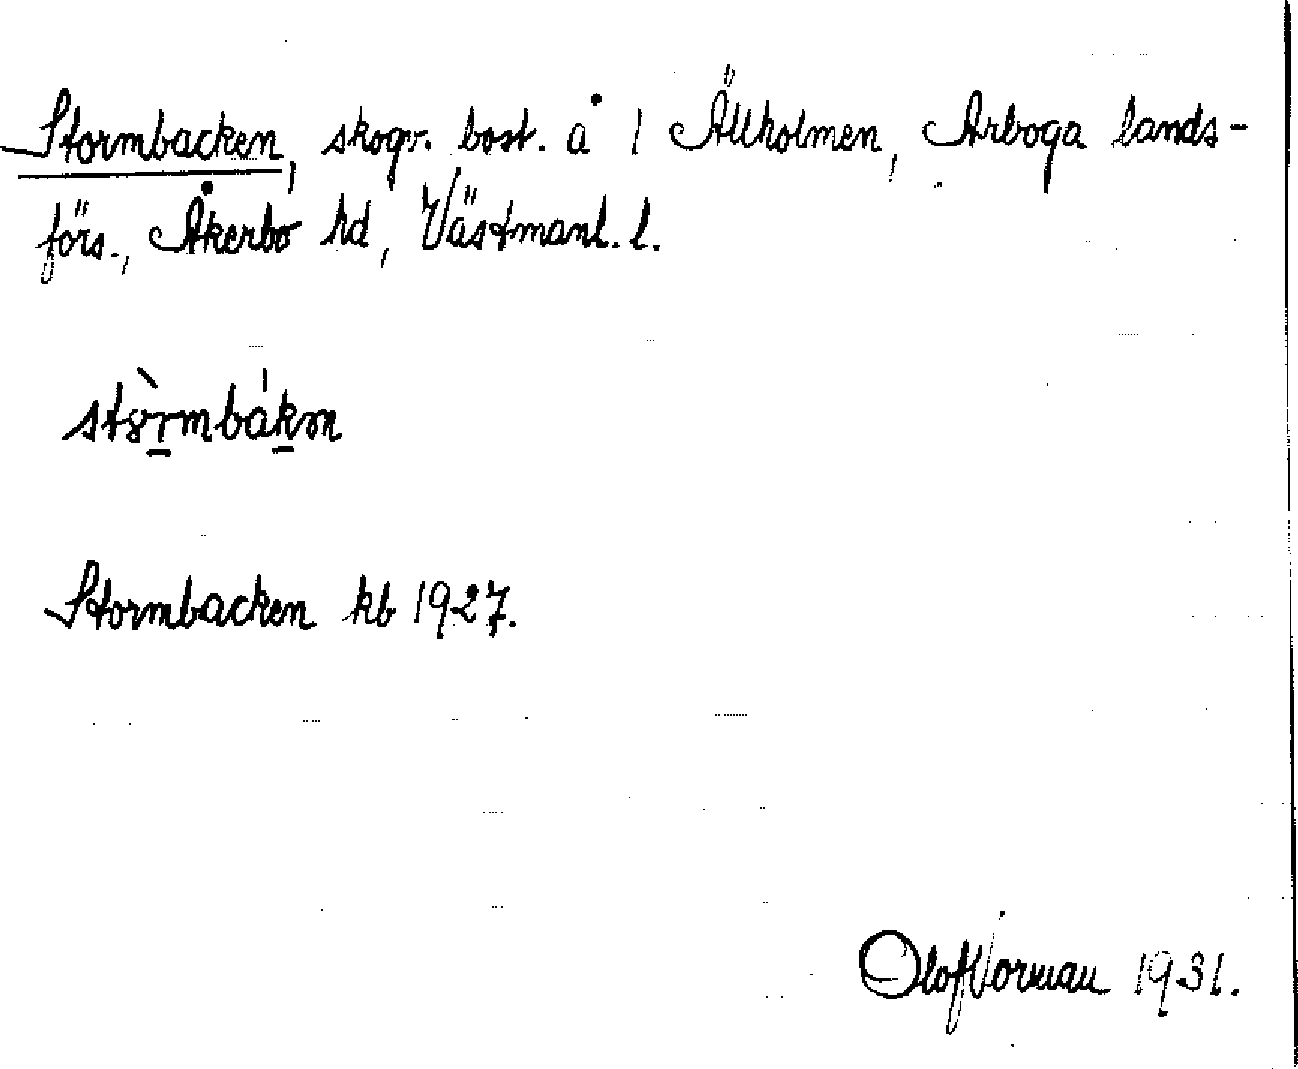 Stormbacken, skogv. bost. å 1 Ällholmen, Arboga lands-
förs., Åkerbo hd, Västmanl. l.
Stormbacken kb 1927.
Olof Vorman 1931.